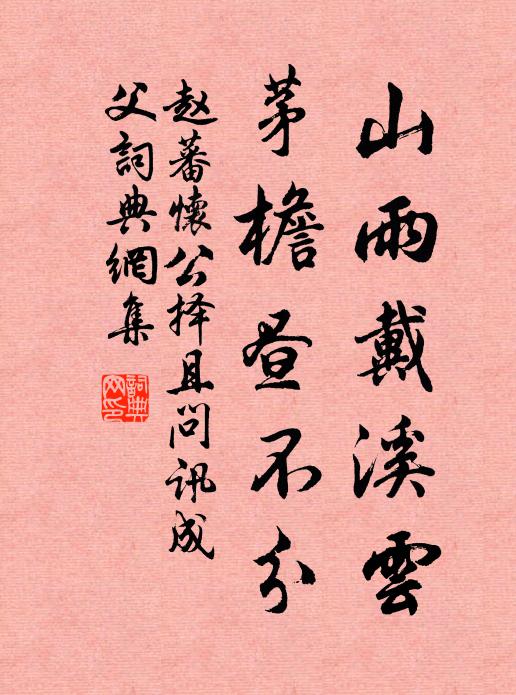 山雨戴溪雲
茅檐昼不分
赵蕃懷公择且问讯成
父詞典網集
詞典网印